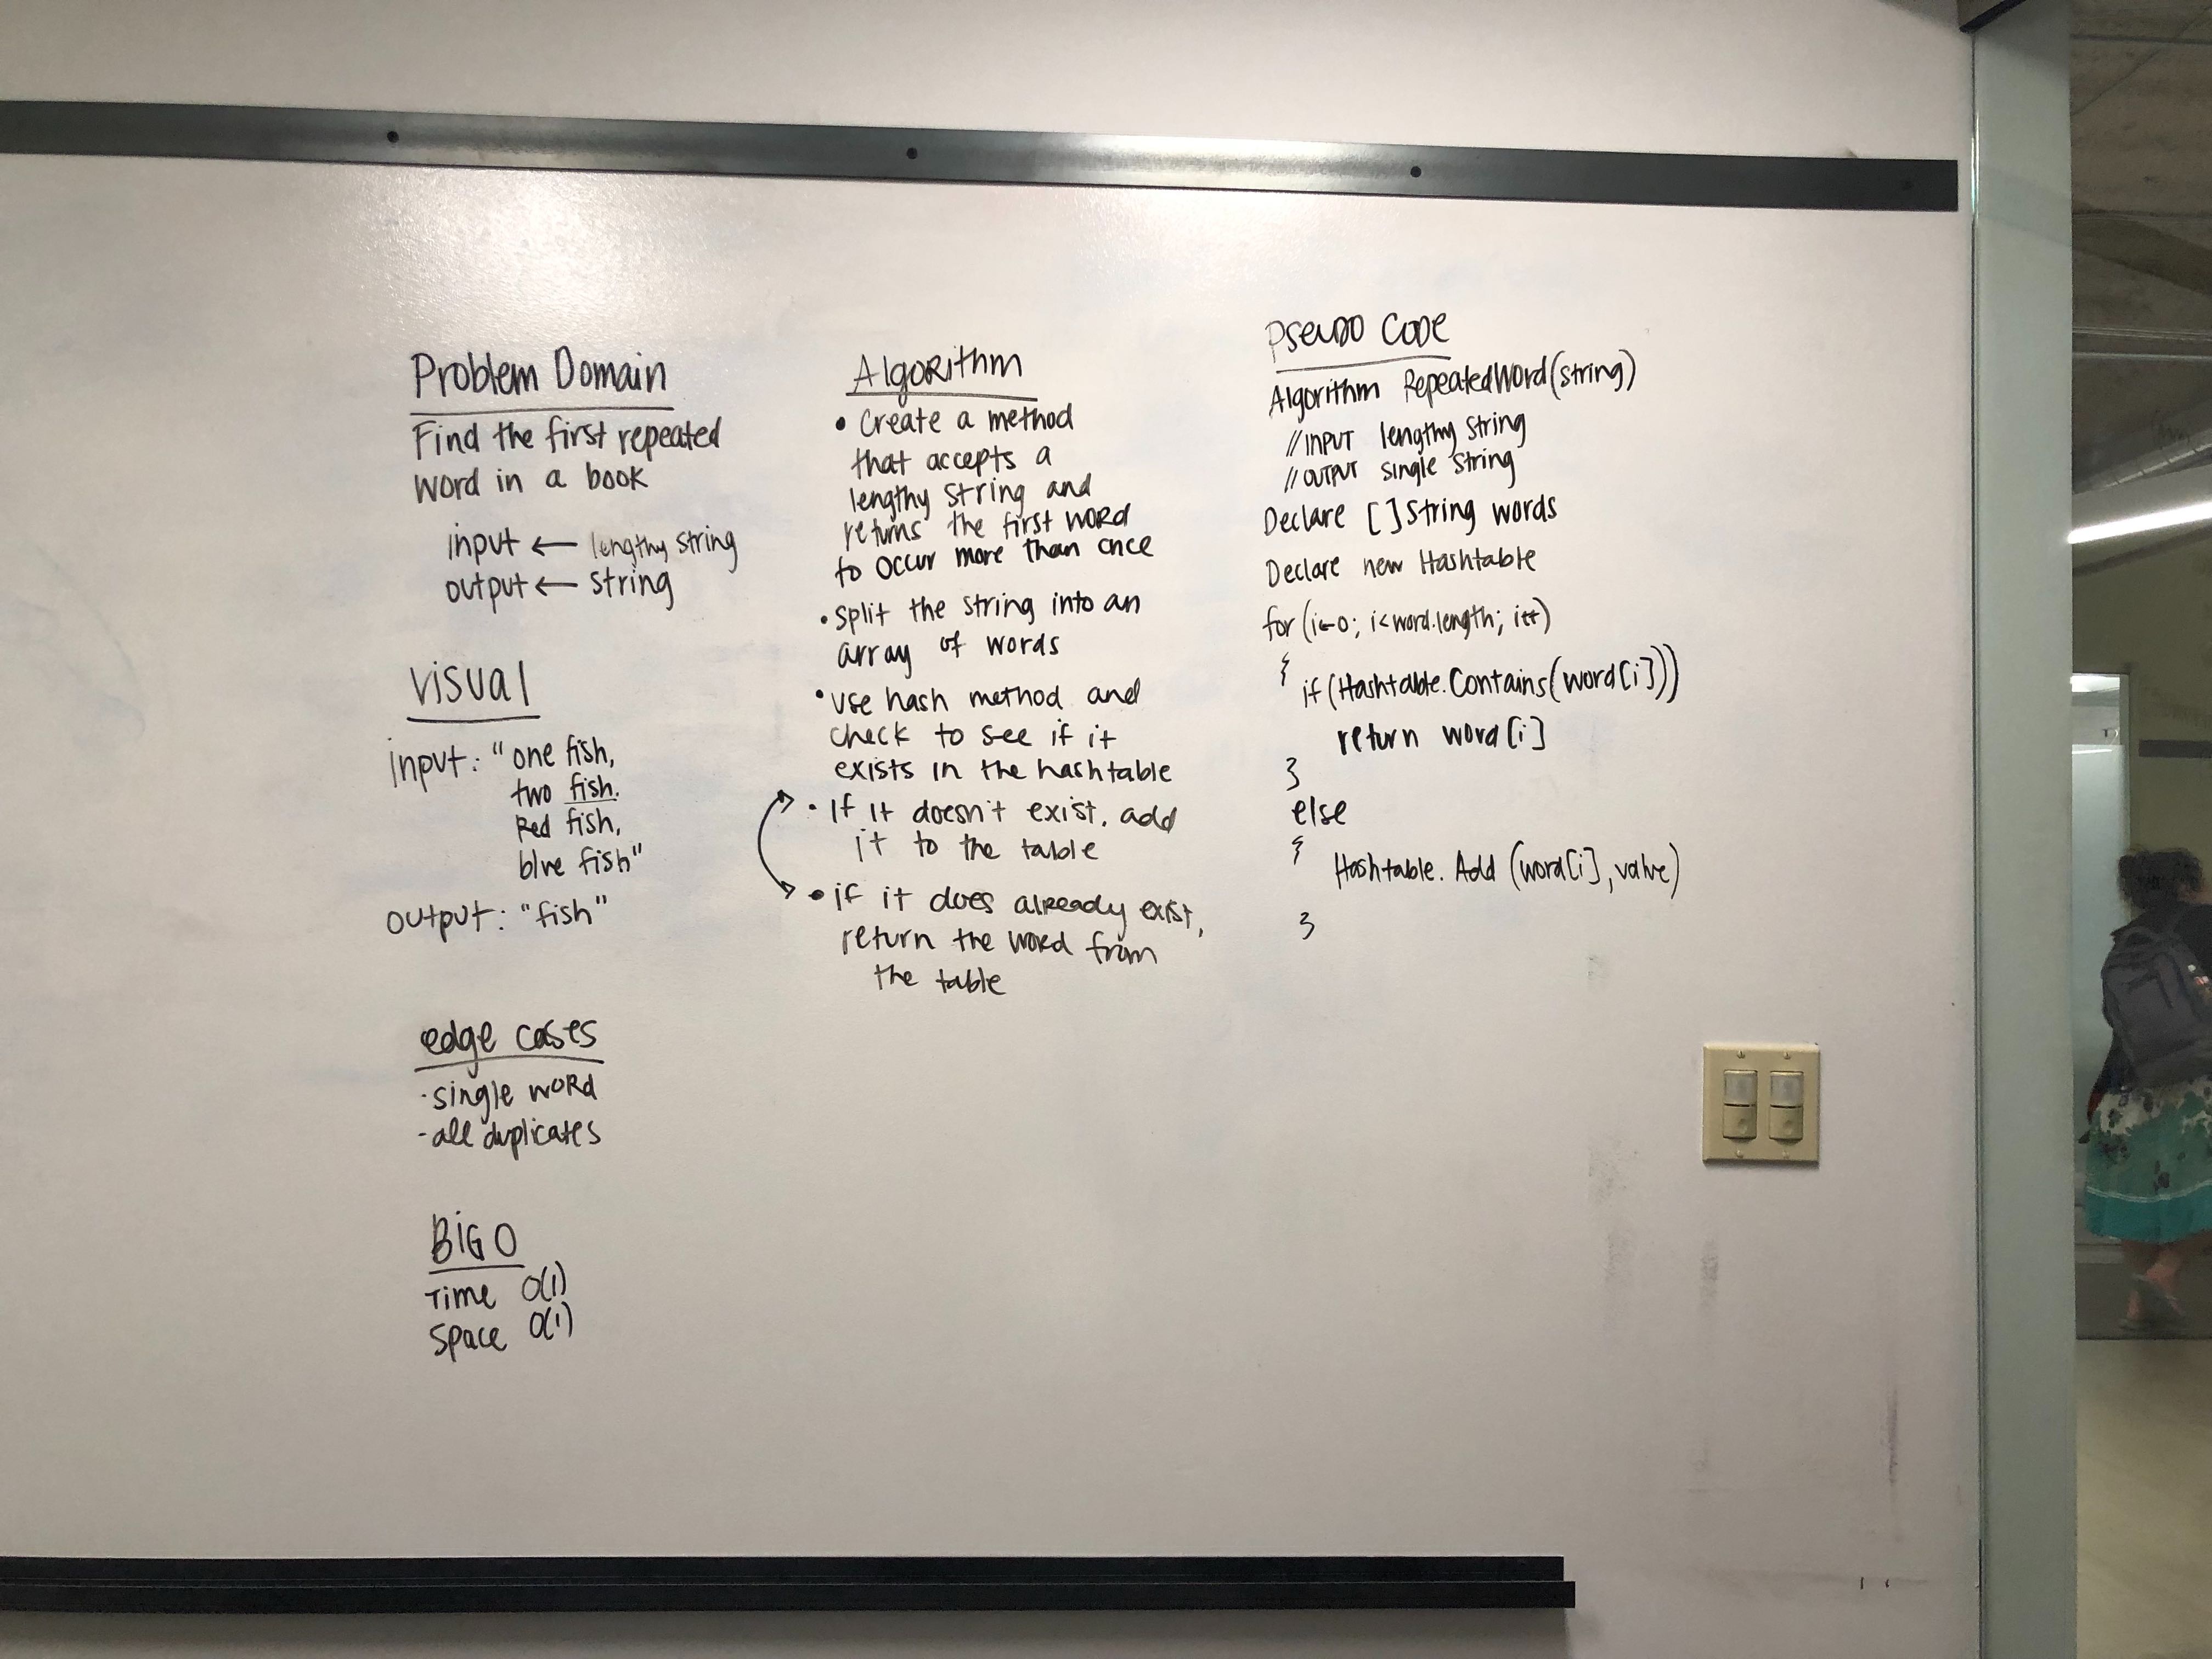 Problem Domain
Find the first repeated
word in a book
input ← lengthy string
output ← string
Visual
input: "one fish,
two fish.
Red fish,
blue fish"
output: "fish"
edge cases
-single word
-all duplicates
BIG O
Time O(1)
Space O(1)
Algorithm
• Create a method
that accepts a
lengthy string and
returns the first word
to occur more than once
• Split the string into an
array of words
• use hash method and
check to see if it
exists in the hashtable
• If it doesn't exist, add
it to the table
• if it does already exist,
return the word from
the table
Pseudo Code
Algorithm RepeatedWord(string)
//INPUT lengthy string
//OUTPUT single string
Declare []String words
Declare new Hashtable
for (i←0; i<word.length; i++)
{
if (Hashtable.Contains(word[i]))
return word[i]
}
else
{
Hashtable. Add (word[i], value)
}